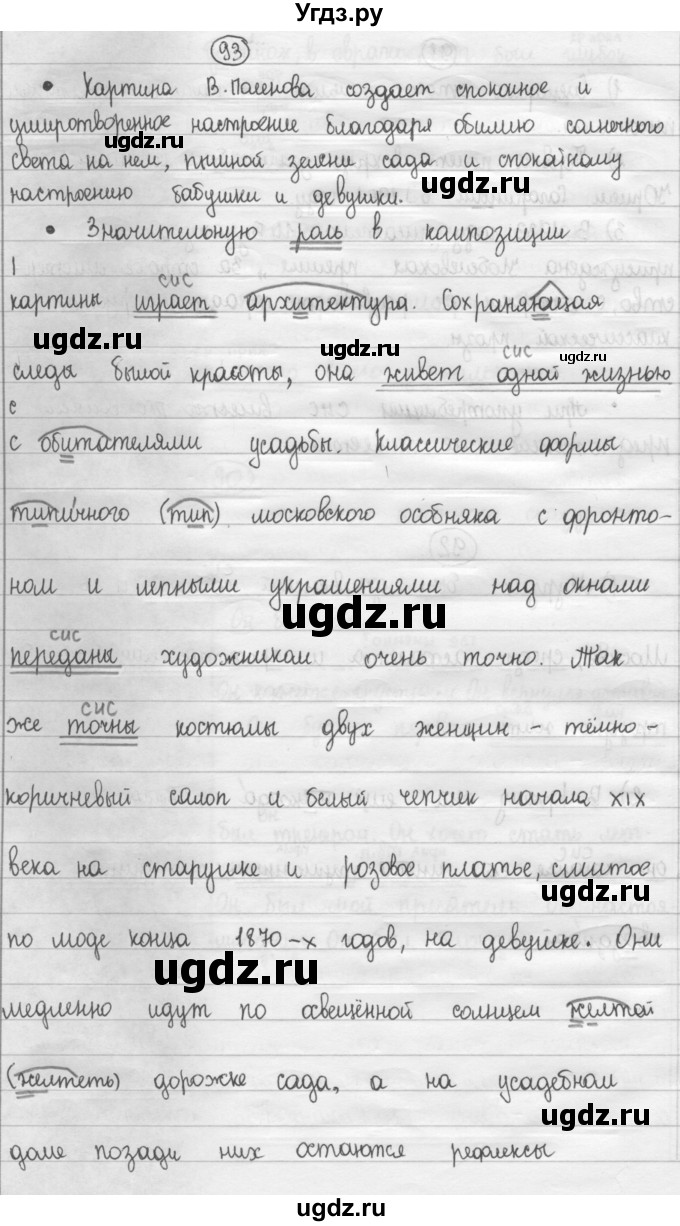 Угдз.ру
93
• Картина В. Поленова создает спокойное и
умиротворенное настроение благодаря обилию солнечного
света на нем, пышной зелени сада и спокойному
настроению бабушки и девушки.
ugdz.ru
• Значительную роль в композиции
1
сис
картины играет архитектура. Сохраняющая
ugdz.ru
ugdz.ru
ugdz.ru
сис
следы былой красоты, она живет одной жизнью
с
с обитателями усадьбы. Классические формы
типичного (тип) московского особняка с фронто-
ном и лепными украшениями над окнами
ugdz.ru
сис
переданы художником очень точно. Так
сис
же точны костюмы двух женщин – тёмно-
коричневый салоп и белый чепчик начала XIX
века на старушке и розовое платье, сшитое
ugdz.ru
по моде конца 1870-х годов, на девушке. Они
ugdz.ru
медленно идут по освещённой солнцем желтой
ugdz.ru
(желтеть) дорожке сада, а на усадебном
ugdz.ru
доме позади них остаются рефлексы
ugdz.ru